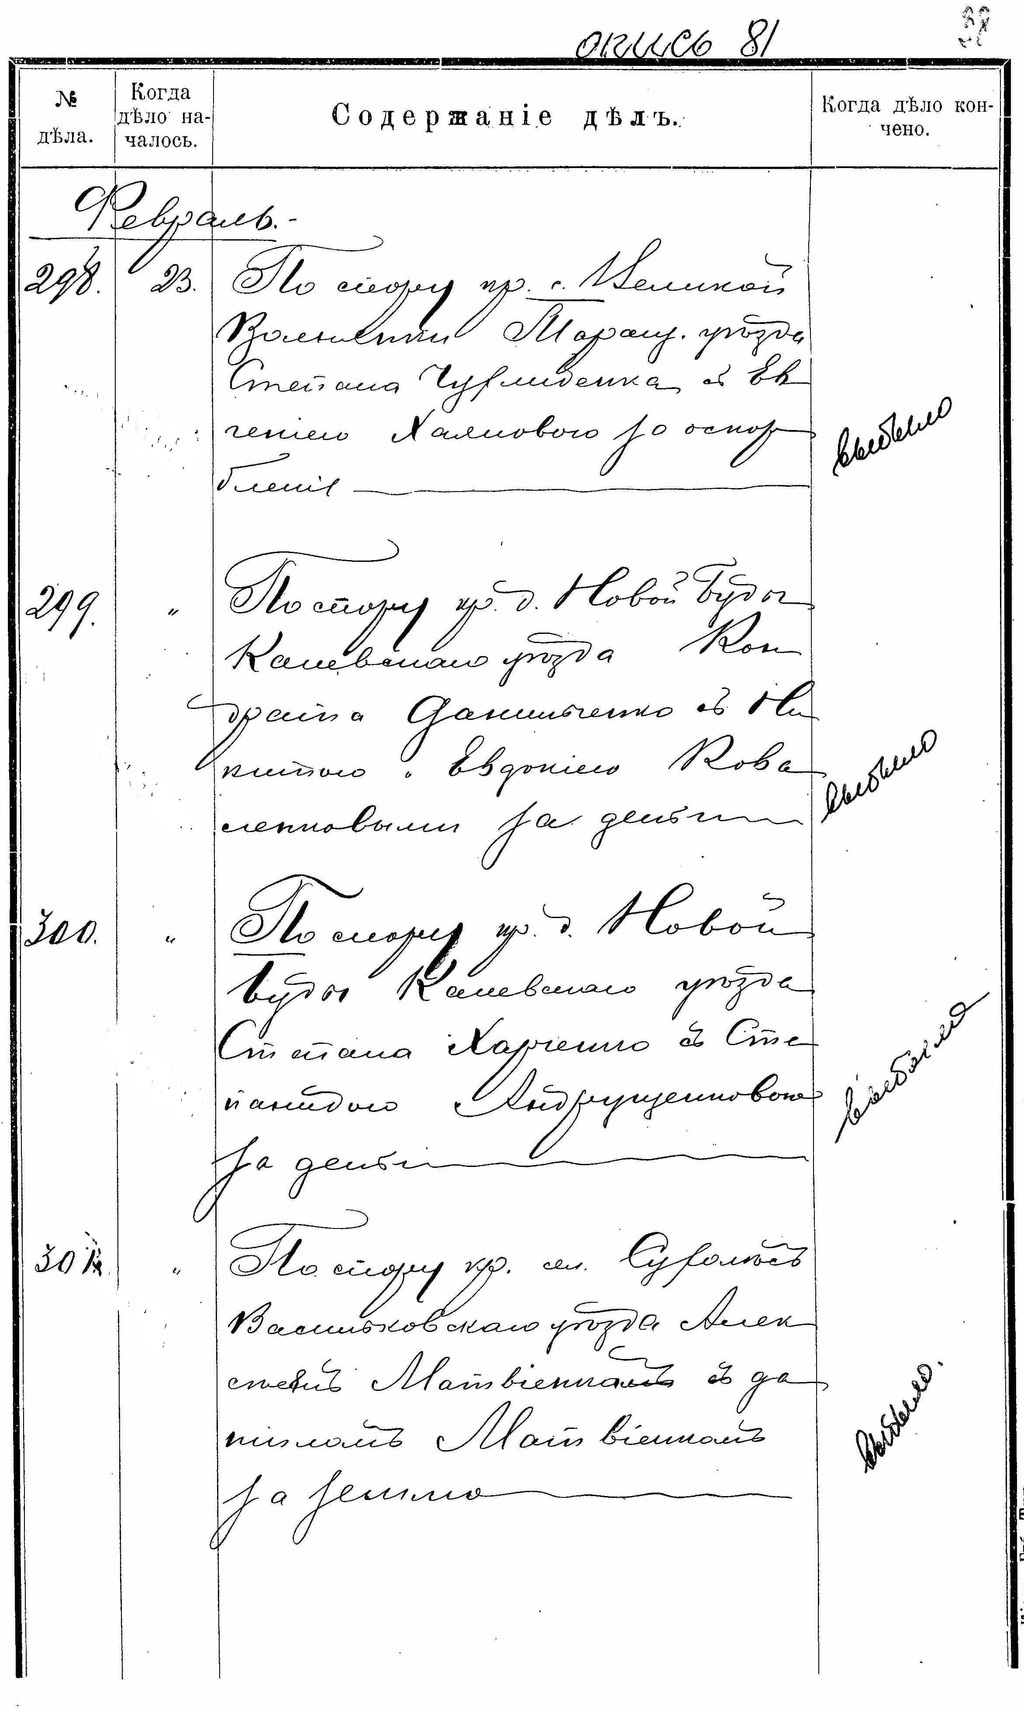 опись 81
№ дѣла.
Когда дѣло началось.
Содержаніе дѣлъ.
Когда дѣло кончено.
Февраль.-
298. 23. По спору кр. с. Великой
Вольшанки Таращ. уѣзда
Степана съ Ев
геніею Халповою за оскор
бленія
выбыло
299. " По спору кр. д. Новой Буды
Каневскаго уѣзда Кон
драта Данильченко съ Ни
китою и Евдокіею Кова
ленковыми за деньги
выбыло
300. " По спору кр. д. Новой
Буды Каневскаго уѣзда
Степана Харченко съ Сте
панидою Андрущенковою
за деньги
выбыло
301. " По спору кр. сел.
Васильковскаго уѣзда Алек
сѣемъ Матвіенкомъ съ Да
ниломъ Матвіенкомъ
за землю
выбыло.